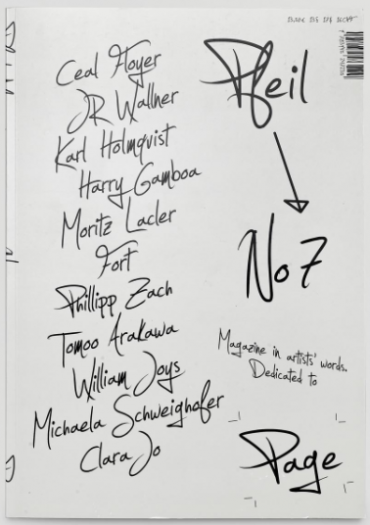 Ceal Floyer
JR Wallner
Karl Holmqvist
Harry Gamboa
Moritz Lacler
Fort
Phillipp Zach
Tomoo Arakawa
William Joys
Michaela Schweighofer
Clara Jo
Pfeil
No 7
Magazine in artists' words.
Dedicated to
Page